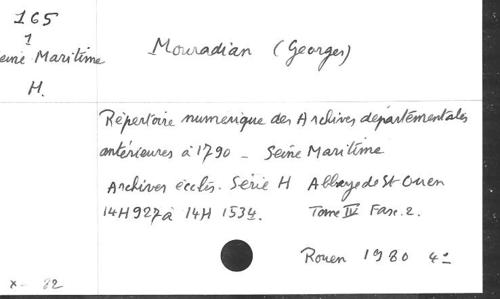 165
1
eine Maritime
H.
Mouradian (Georges)
Répertoire numérique des Archives départementales
antérieures à 1790 - Seine Maritime
Archives ecclés. Série H Abbaye de St Ouen
14H927 à 14H 1534. Tome IV Fasc. 2.
Rouen 1980 4°
x - 82